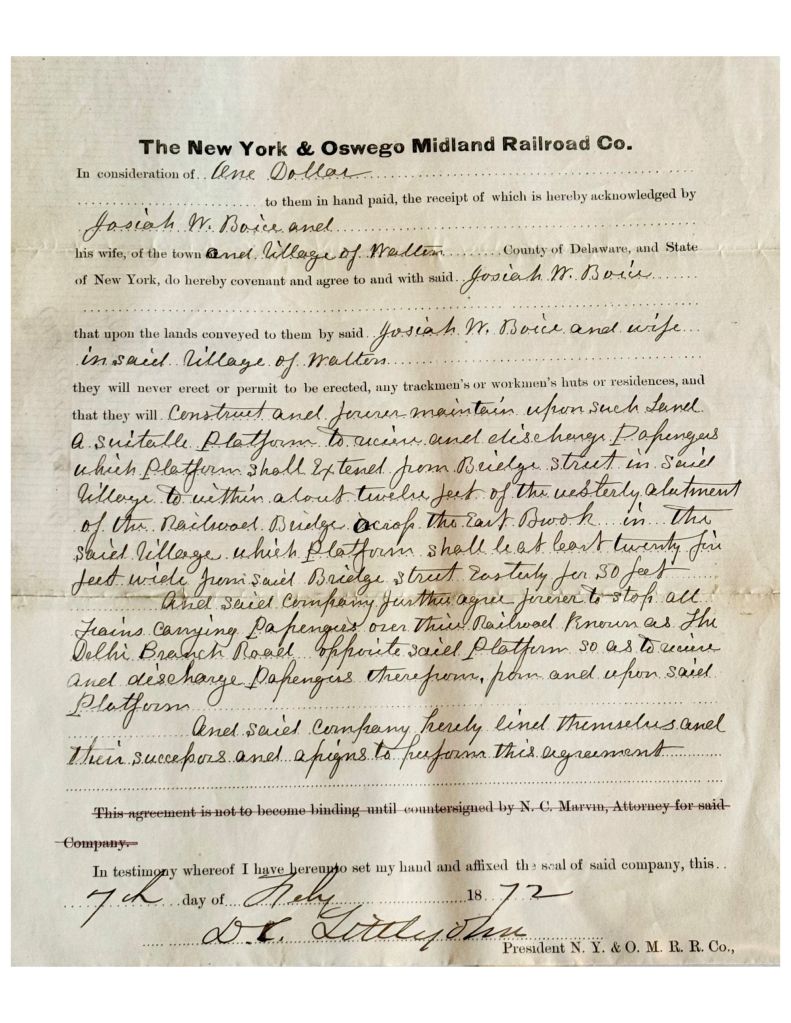 The New York & Oswego Midland Railroad Co.
In consideration of One Dollar
to them in hand paid, the receipt of which is hereby acknowledged by
Josiah W. Boice and
his wife, of the town and Village of Walton County of Delaware, and State
of New York, do hereby covenant and agree to and with said Josiah W. Boice
that upon the lands conveyed to them by said Josiah W. Boice and wife
in said Village of Walton
they will never erect or permit to be erected, any trackmen's or workmen's huts or residences, and
that they will Construct and forever maintain upon such Land
a suitable Platform to receive and discharge Passengers
which Platform shall Extend from Bridge street in said
Village to within about twelve feet of the westerly abutment
of the Railroad Bridge across the East Brook in the
said Village which Platform shall be at least twenty five
feet wide from said Bridge street Easterly for 30 feet
And said Company further agree forever to stop all
Trains Carrying Passengers over their Railroad Known as The
Delhi Branch Road opposite said Platform so as to receive
and discharge Passengers therefrom, from and upon said
Platform
And said Company hereby bind themselves and
their successors and assigns to perform this agreement
This agreement is not to become binding until countersigned by N. C. Marvin, Attorney for said
Company.
In testimony whereof I have hereunto set my hand and affixed the seal of said company, this
7th day of Feby 1872
D. C. Littlejohn
President N. Y. & O. M. R. R. Co.,